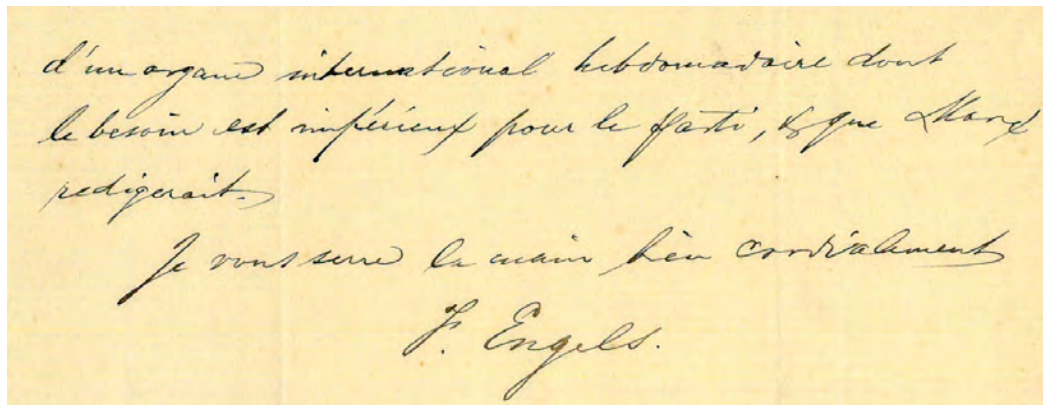 d'un organe international hebdomadaire dont
le besoin est impérieux pour le parti, & que Marx
redigerait.
Je vous serre la main bien cordialement
F. Engels.